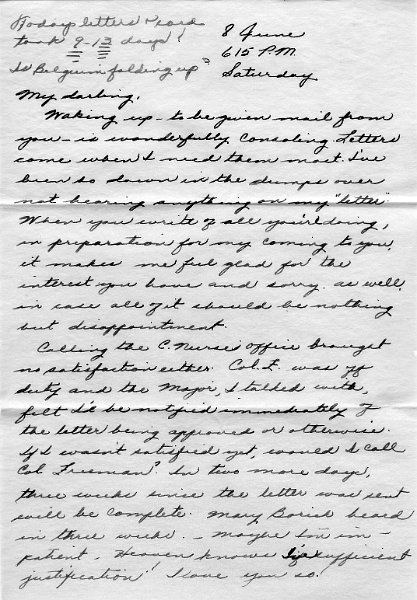 Today's letters & card
took 9-13 days!
Is Belgium folding up?
8 June
615 P.M.
Saturday
My darling,
Waking up - to be given mail from
you - is wonderfully consoling. Letters
come when I need them most. I've
been so down in the dumps over
not hearing anything on my "letter".
When you write of all you're doing,
in preparation for my coming to you,
it makes me feel glad for the
interest you have and sorry as well,
in case all of it should be nothing
but disappointment.
Calling the C. Nurse's office brought
no satisfaction either. Col. F. was off
duty and the Major, I talked with,
felt I'd be notified immediately of
the letter being approved or otherwise.
If I wasn't satisfied yet, would I call
Col. Freeman? In two more days,
three weeks since the letter was sent
will be complete. Mary Borish heard
in three weeks. - Maybe I'm im-
patient. Heaven knows sufficient
justification! I love you so!